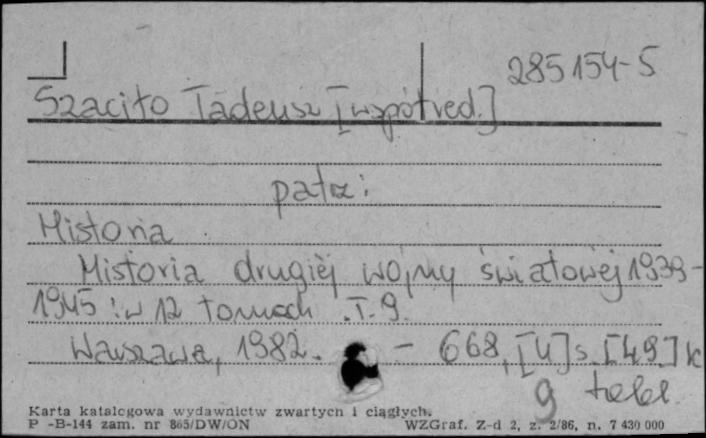 285154-S
Szaciło Tadeusz [współred.]
patrz:
Historia
Historia drugiej wojny światowej 1939-
1945 : w 12 tomach. T. 9.
Warszawa, 1982. - 668, [4] s. [49] k
9 tabl.
Karta katalogowa wydawnictw zwartych i ciągłych.
P -B-144 zam. nr 865/DW/ON WZGraf. Z-d 2, z. 2/86, n. 7 430 000